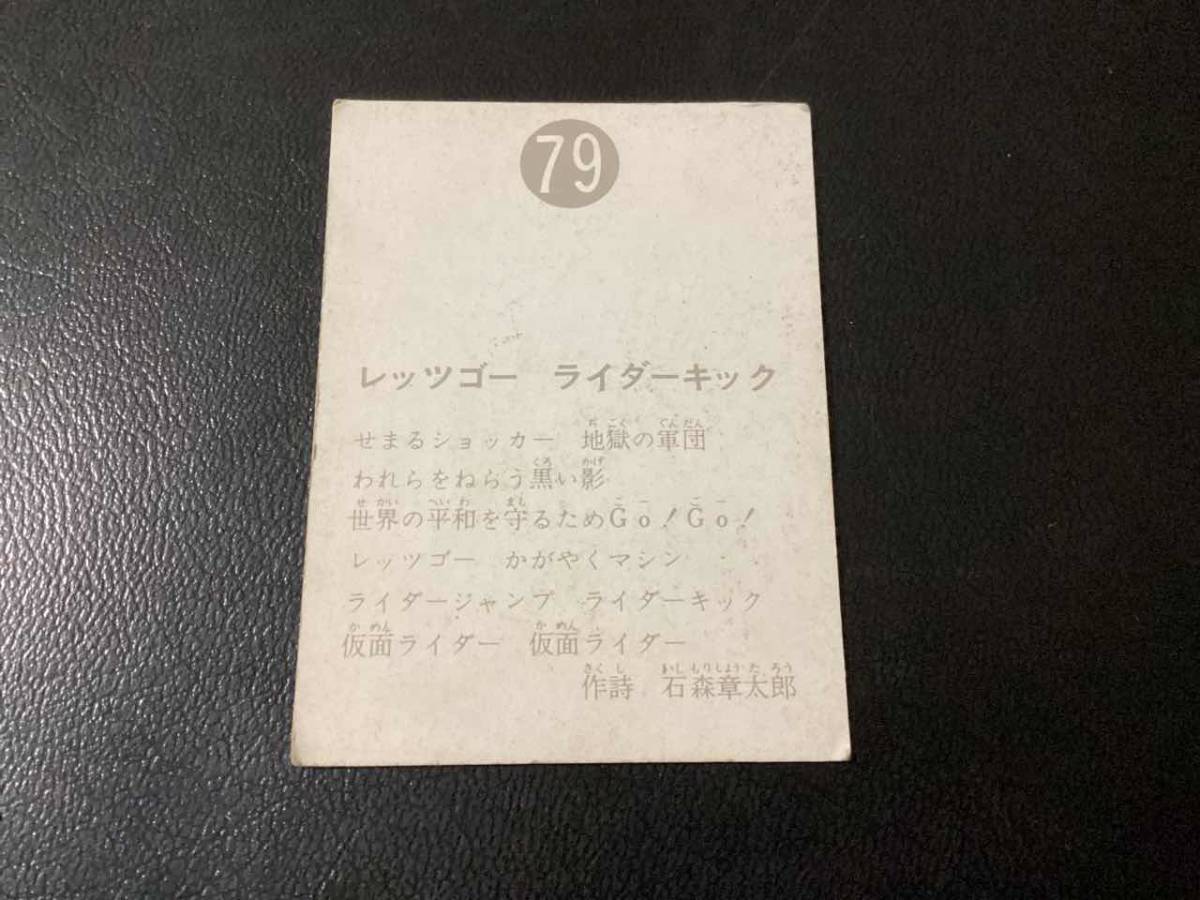 79
レッツゴー　ライダーキック
せまるショッカー　地獄の軍団
われらをねらう黒い影
世界の平和を守るためGo！Go！
レッツゴー　かがやくマシン
ライダージャンプ　ライダーキック
仮面ライダー　仮面ライダー
作詩　石森章太郎